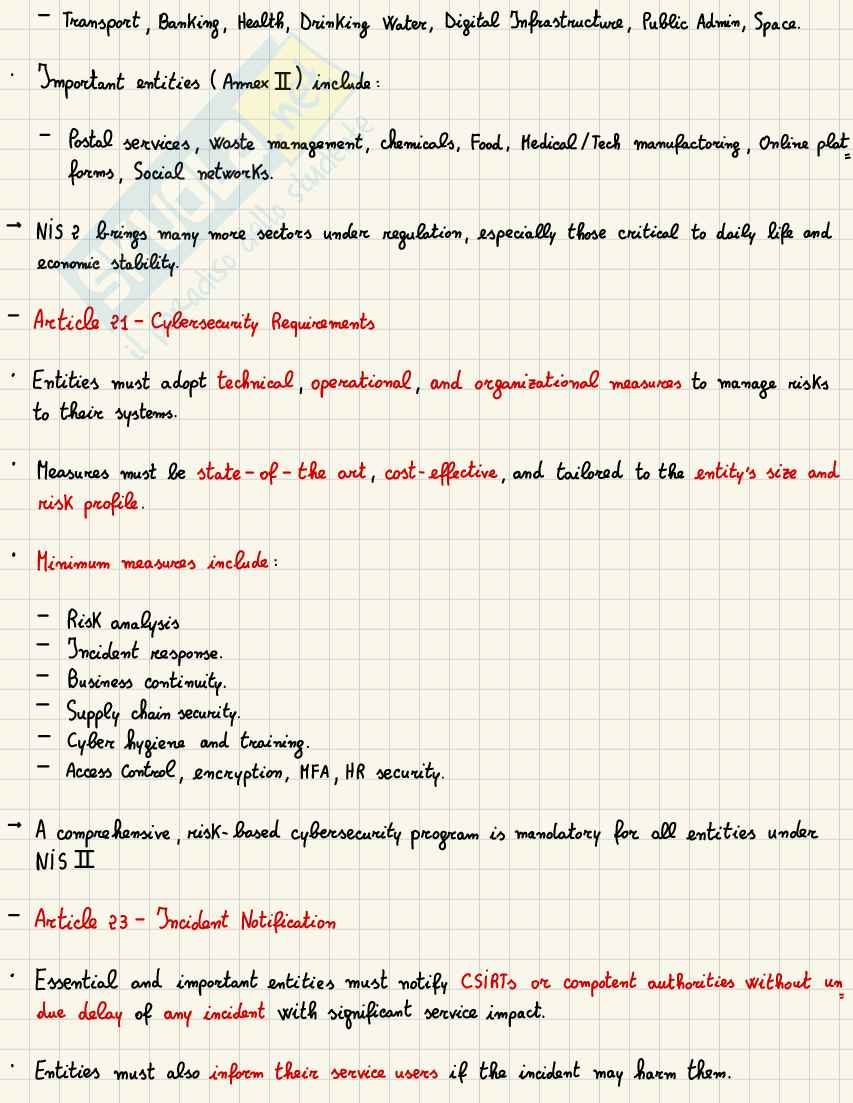 - Transport, Banking, Health, Drinking Water, Digital Infrastructure, Public Admin, Space.
· Important entities (Annex II) include:
- Postal services, Waste management, chemicals, Food, Medical/Tech manufactoring, Online plat=
forms, Social networks.
→ NiS 2 brings many more sectors under regulation, especially those critical to daily life and
economic stability.
- Article 21 - Cybersecurity Requirements
· Entities must adopt technical, operational, and organizational measures to manage risks
to their systems.
· Measures must be state-of-the art, cost-effective, and tailored to the entity's size and
risk profile.
· Minimum measures include:
- Risk analysis
- Incident response.
- Business continuity.
- Supply chain security.
- Cyber hygiene and training.
- Access Control, encryption, MFA, HR security.
→ A comprehensive, risk-based cybersecurity program is mandatory for all entities under
NiS II
- Article 23 - Incident Notification
· Essential and important entities must notify CSiRTs or compotent authorities without un=
due delay of any incident with significant service impact.
· Entities must also inform their service users if the incident may harm them.
SKUOLA.net
il paradiso dello studente